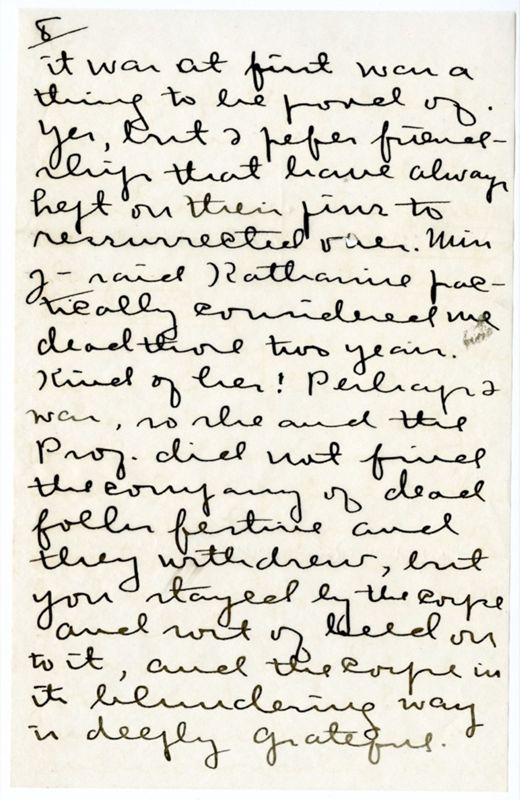 8
it was at first was a
thing to be proud of.
Yes, but I prefer friend-
ships that have always
kept on their pins to
ressurrected ones. Miss
J- said Katharine prac-
tically considered me
dead those two years.
Kind of her! Perhaps I
was, so she and the
Prof. did not find
the company of dead
folks festive and
they withdrew, but
you stayed by the corpse
and sort of held on
to it, and the corpse in
its blundering way
is deeply grateful.